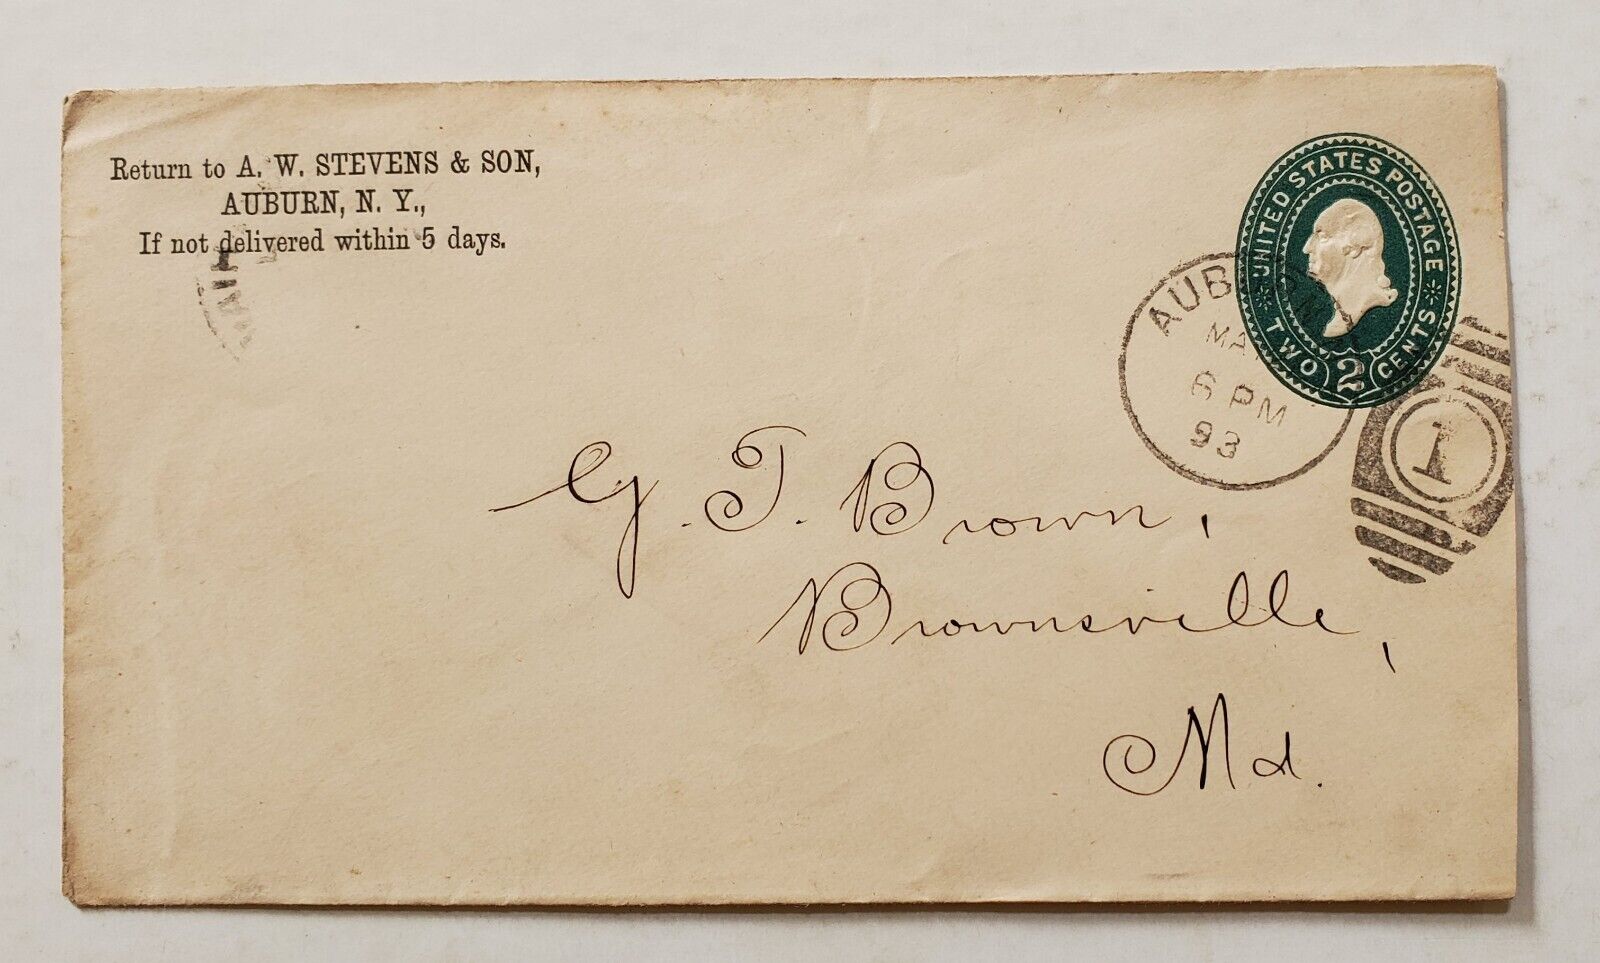 Return to A. W. STEVENS & SON,
AUBURN, N. Y.,
If not delivered within 5 days.
UNITED STATES POSTAGE
TWO 2 CENTS
AUBURN
MA
6 PM
93
1
G. T. Brown,
Brownsville,
Md.